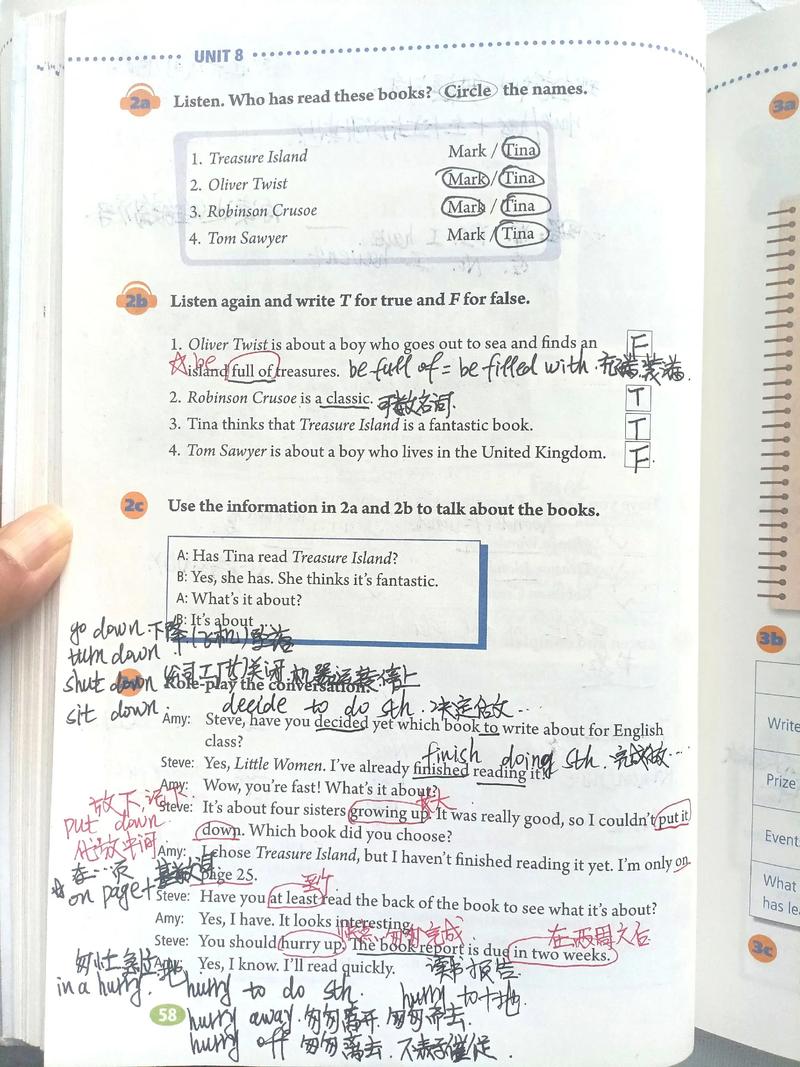 UNIT 8
2a Listen. Who has read these books? Circle the names.
1. Treasure Island Mark / Tina
2. Oliver Twist Mark / Tina
3. Robinson Crusoe Mark / Tina
4. Tom Sawyer Mark / Tina
2b Listen again and write T for true and F for false.
1. Oliver Twist is about a boy who goes out to sea and finds an F
be island full of treasures. be full of = be filled with 充满,装满
2. Robinson Crusoe is a classic. 可数名词 T
3. Tina thinks that Treasure Island is a fantastic book. T
4. Tom Sawyer is about a boy who lives in the United Kingdom. F
2c Use the information in 2a and 2b to talk about the books.
A: Has Tina read Treasure Island?
B: Yes, she has. She thinks it's fantastic.
A: What's it about?
B: It's about ...
go down. 下降
turn down
shut down 公司工厂的关闭,机器运转停止
Role-play the conversation.
sit down. decide to do sth. 决定做…
Amy: Steve, have you decided yet which book to write about for English
class?
finish doing sth. 完成做…
Steve: Yes, Little Women. I've already finished reading it!
Amy: Wow, you're fast! What's it about?
放下,
Steve: It's about four sisters growing up. It was really good, so I couldn't put it
put down
down. Which book did you choose?
Amy: I chose Treasure Island, but I haven't finished reading it yet. I'm only on
在…页
page 25.
on page + 基数词
至少
Steve: Have you at least read the back of the book to see what it's about?
Amy: Yes, I have. It looks interesting.
匆匆完成 在两周之后
Steve: You should hurry up. The book report is due in two weeks.
Amy: Yes, I know. I'll read quickly. 读书报告
in a hurry. hurry to do sth. hurry to + 地
58
hurry away. 匆匆离开,匆匆而去.
hurry off 匆匆离去,不表示催促.
3a
3b
Write
Prize
Event
What
has lea
3c